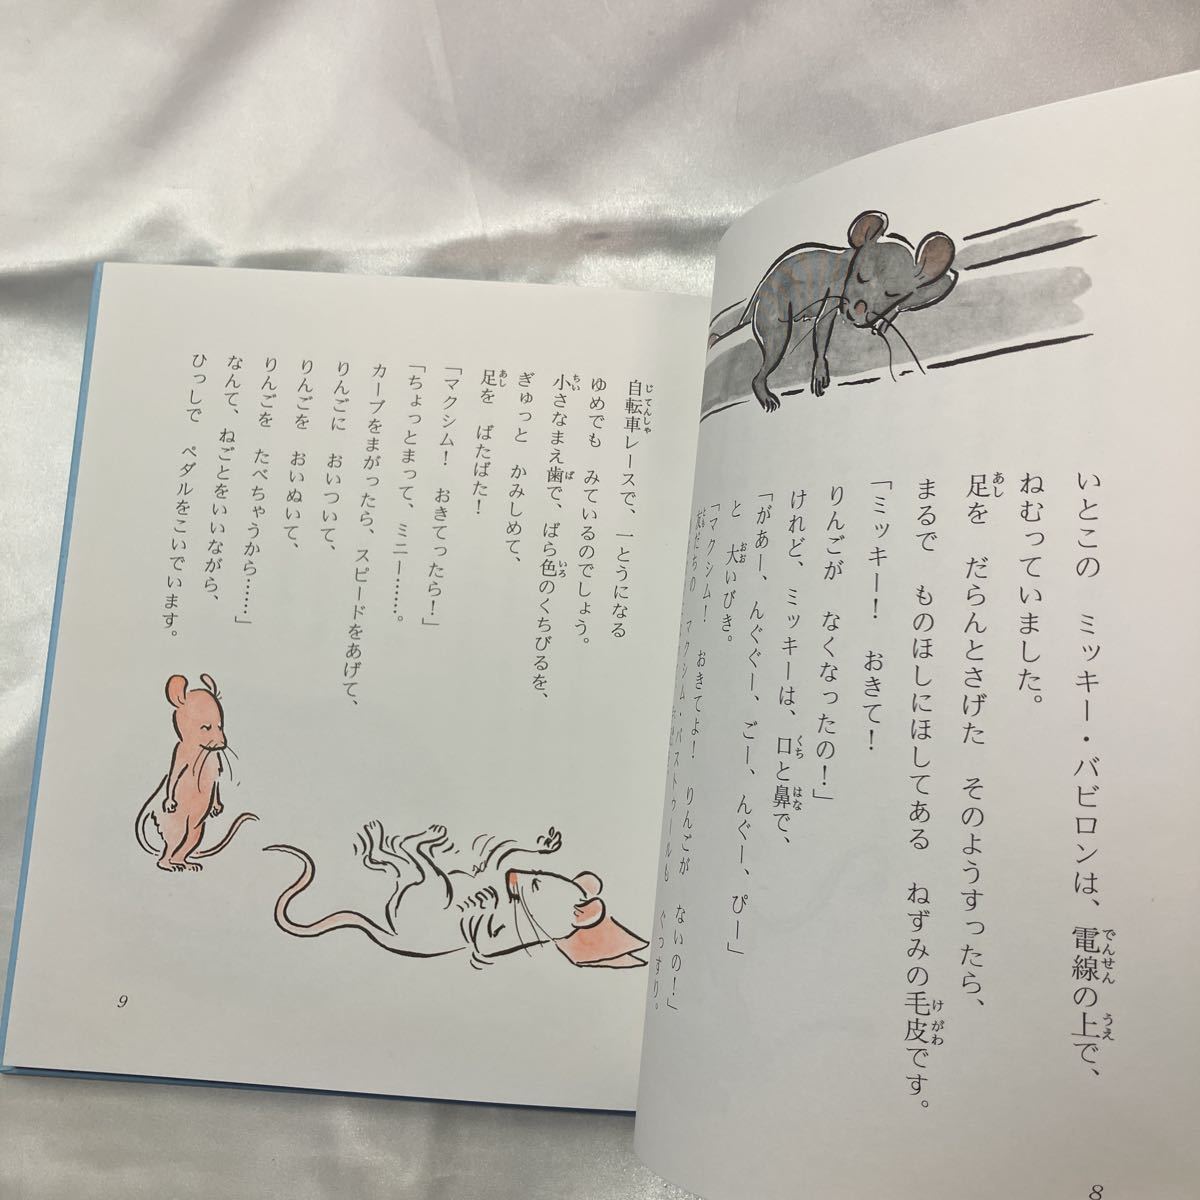 いとこの ミッキー・バビロンは、電線の上で、
ねむっていました。
足を だらんとさげた そのようすったら、
まるで ものほしにほしてある ねずみの毛皮です。
「ミッキー! おきて!
りんごが なくなったの!」
けれど、ミッキーは、口と鼻で、
「があー、んぐぐー、ごー、んぐー、ぴー」
と 大いびき。
「マクシム! おきてよ! りんごが ないの!」
友だちの マクシム・パストゥールも ぐっすり。
8
自転車レースで、一とうになる
ゆめでも みているのでしょう。
小さなまえ歯で、ばら色のくちびるを、
ぎゅっと かみしめて、
足を ばたばた!
「マクシム! おきてったら!」
「ちょっとまって、ミニー……。
カーブをまがったら、スピードをあげて、
りんごに おいついて、
りんごを おいぬいて、
りんごを たべちゃうから……」
なんて、ねごとをいいながら、
ひっしで ペダルをこいでいます。
9